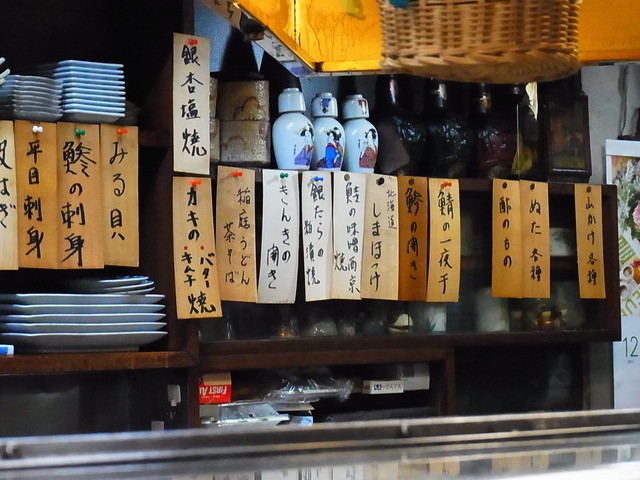 銀杏塩焼
平目刺身
鯵の刺身
みる貝
カキの
バター焼
キムチ
稲庭うどん
茶そば
きんきの開き
銀だらの
粕漬焼
鮭の味噌西京
焼
北海道
しまほっけ
鯵の開き
鯖の一夜干
酢のもの
ぬた各種
山かけ各種
FIRST AID
12